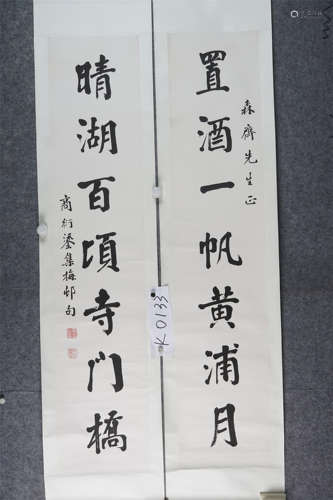 森齋先生正
置酒一帆黄浦月
晴湖百頃寺門橋
商衍鎏集梅邨句
K0133